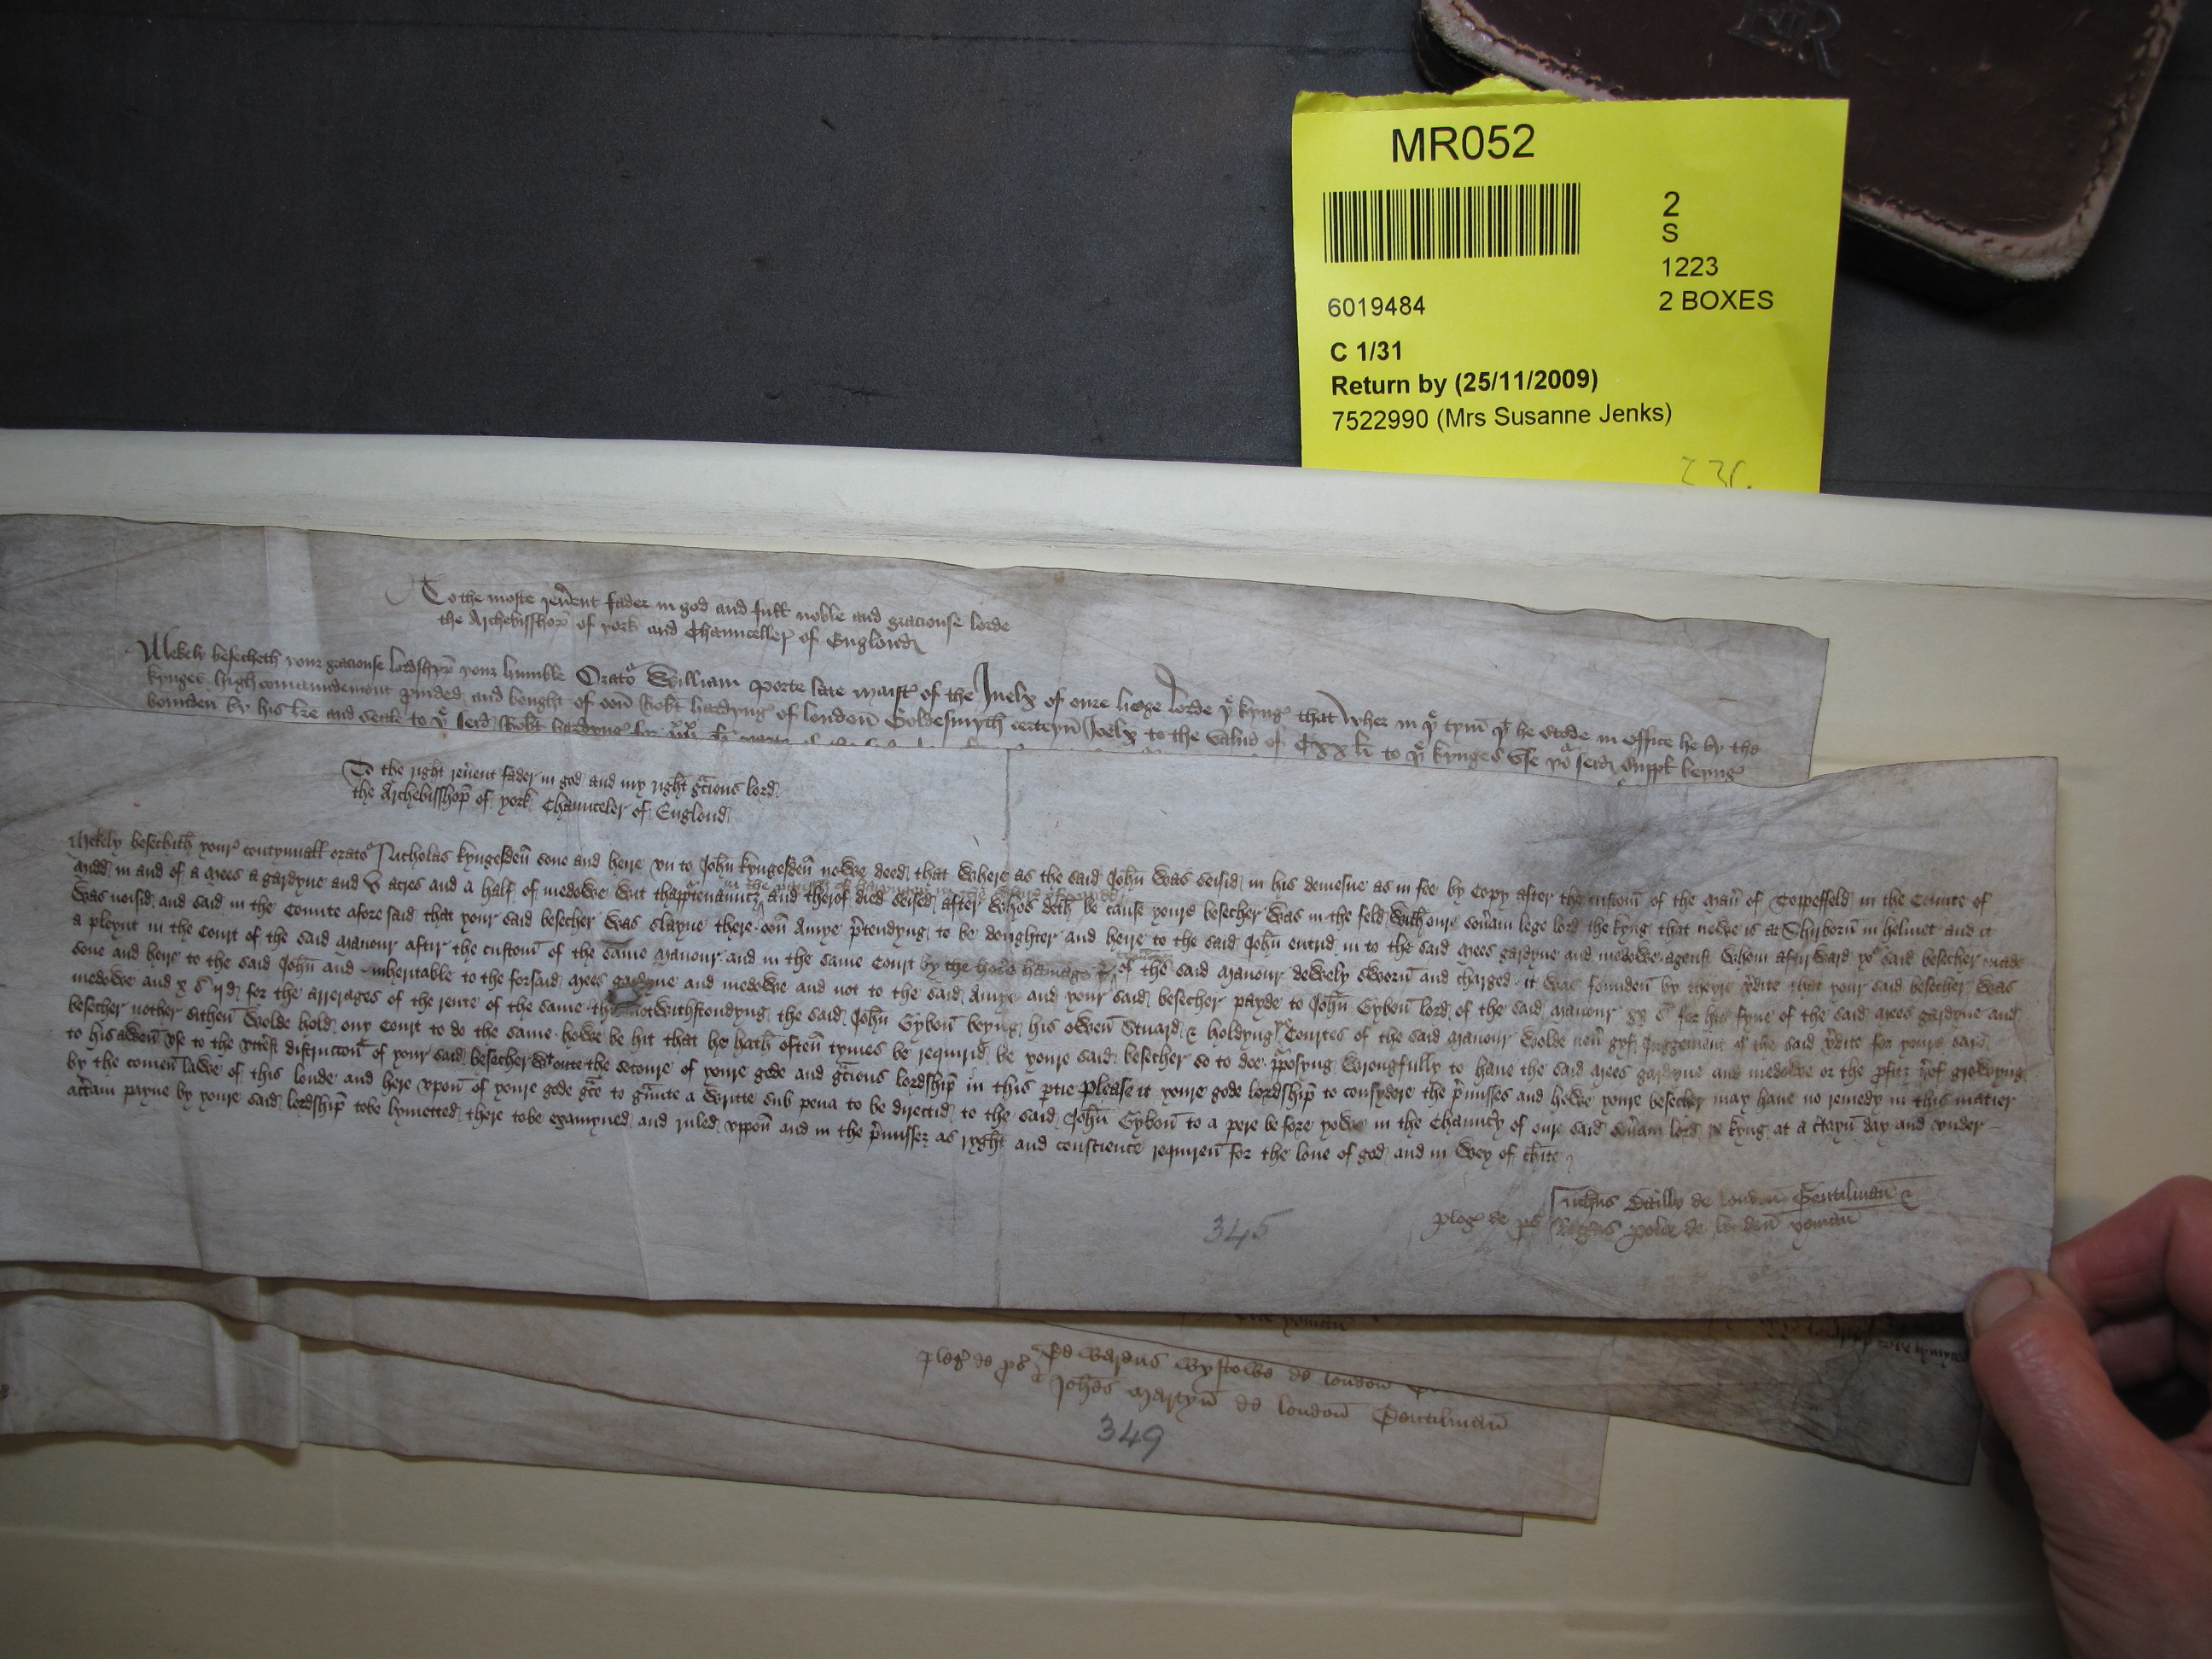 MR052
2
S
1223
6019484
2 BOXES
C 1/31
Return by (25/11/2009)
7522990 (Mrs Susanne Jenks)
To the moste reu'ent fader in god and full noble and graciouse lorde
the Archebisshop of york and Chaunceller of Englond
Mekely besecheth your graciouse lordshipp your humble Orato' William Porte late maist' of the Juelx of oure liege lorde þe kyng that wher in þe tym þt he stode in office he by the
kynges high comaundement prouided and bought of oon Robt hardyng of london Goldesmyth certeyn Joelx to the value of Cxx li to þe kynges vse yo' seid suppl' beyng
bounden by his l're and seale to þe seid Robt hardyng for
To the right reu'ent fader in god and my right g'cious lord
the Archebisshop of york Chaunceler of Englond
Mekely besechith your contynuall orato' Nicholas kyngesden sone and heire vn to John kyngesden nowe deed that where as the said John was seisid in his demesne as in fee by Copy after the custom of the man' of Toppesfeld in the Counte of
Midd in and of a mees a gardyne and v acres and a half of medowe wit thapp'tenauntz and therof died seised after whos deth be cause youre besecher was in the feld with oure sou'am lege lord the kyng that nowe is at Shyborn in helmet and it
was noisid and said in the Counte afore said that your said besecher was slayne there oon Amye p'tendyng to be doughter and heire to the said John entrid in to the said mees gardyne and medowe agenst whom aftirward yo' said besecher made
a pleynt in the Court of the said manour aftir the custom of the same manour and in the same Court by the of the said manour dewely sworn and charged it was founden by theyre v'dite that your said besecher was
sone and heire to the said John and inheritable to the forsaid mees gardyne and medowe and not to the said Amye and your said besecher payde to John Gybon lord of the said manour xx s' for his fyne of the said mees gardyne and
medowe and x s' ijd for the arrerages of the rente of the same notwithstondyng the said John Gybon beyng his owen Stuard & holdyng Courtes of the said manour wolde neu' gyf Juggement of the said v'dite for youre said
besecher nother sithen wolde hold ony Court to do the same howe be hit that he hath often tymes be requirid be youre said besecher so to doe p'posyng wrongfully to haue the said mees gardyne and medowe or the p'fitz th'of growyng
to his awen vse to the vttest distruccon of your said besecher wt oute the socoure of youre gode and g'cious lordship in this p'tie please it youre gode lordship to consydere the p'misses and howe youre besecher may haue no remedy in this matier
by the comen lawe of this londe and here vpon of youre gode g'ce to g'unte a writte sub pena to be directid to the said John Gybon to a pere be fore yowe in the Chauncy of oure said sou'am lord þe kyng at a c'tayn day and vnder
a c'tam payne by youre said lordship tobe lymetted there tobe examyned and ruled vppon and in the p'missez as ryght and conscience requiren for the loue of god and in wey of c'hite
pleg' de ps' Nichus de london Gentilman &
de london yoman
345
pleg' de ps' Edwardus Wystowe de london
Johes Martyn de london Gentilman
349